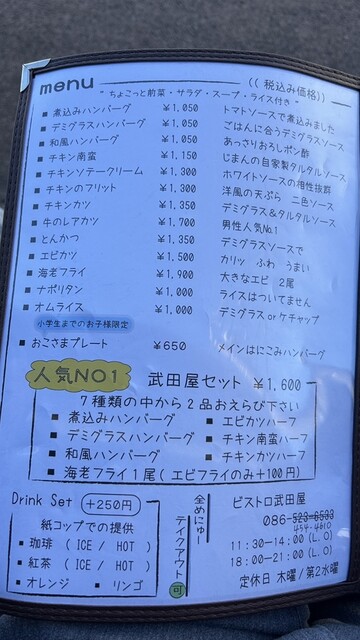 menu
((税込み価格))
"ちょこっと前菜・サラダ・スープ・ライス付き"
■ 煮込みハンバーグ ¥1,050 トマトソースで煮込みました
■ デミグラスハンバーグ ¥1,050 ごはんに合うデミグラスソース
■ 和風ハンバーグ ¥1,050 あっさりおろしポン酢
■ チキン南蛮 ¥1,150 じまんの自家製タルタルソース
■ チキンソテークリーム ¥1,300 ホワイトソースの相性抜群
■ チキンのフリット ¥1,300 洋風の天ぷら 二色ソース
■ チキンカツ ¥1,350 デミグラス&タルタルソース
■ 牛のレアカツ ¥1,700 男性人気No.1
■ とんかつ ¥1,350 デミグラスソースで
■ エビカツ ¥1,500 カリッ ふわ うまい
■ 海老フライ ¥1,900 大きなエビ 2尾
■ ナポリタン ¥1,000 ライスはついてません
■ オムライス ¥1,000 デミグラス or ケチャップ
小学生までのお子様限定
■ おこさまプレート ¥650 メインはにこみハンバーグ
人気NO1 武田屋セット ¥1,600
7種類の中から2品おえらび下さい
■ 煮込みハンバーグ ■ エビカツハーフ
■ デミグラスハンバーグ ■ チキン南蛮ハーフ
■ 和風ハンバーグ ■ チキンカツハーフ
■ 海老フライ1尾(エビフライのみ+100円)
Drink Set +250円
紙コップでの提供
■ 珈琲 (ICE / HOT)
■ 紅茶 (ICE / HOT)
■ オレンジ ■ リンゴ
全めにゅー
テイクアウト可
ビストロ武田屋
086-523-6533
454-4610
11:30-14:00(L.O)
18:00-21:00(L.O)
定休日 木曜/第2水曜